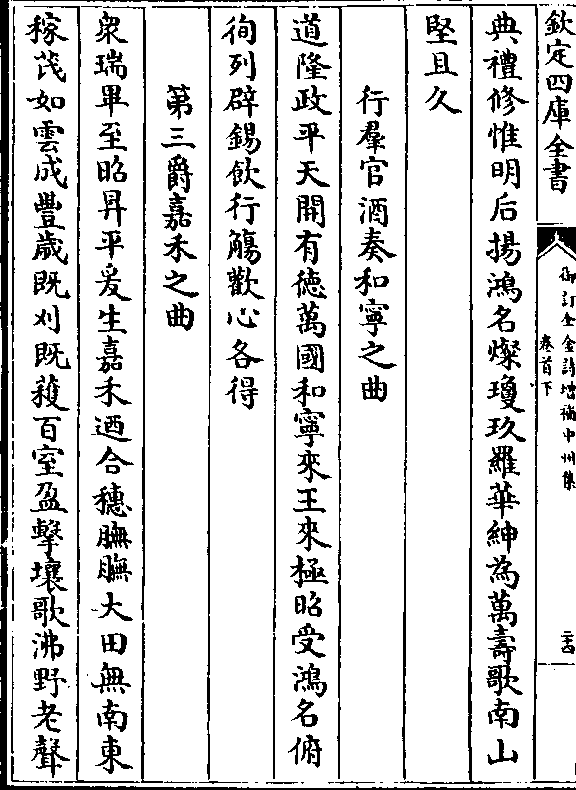 欽定四庫全書
御訂全金詩增補中州集
卷首下
典禮修惟明后揚鴻名燦瓊玖羅華紳為萬壽歌南山
堅且久
行羣官酒奏和寧之曲
道隆政平天開有徳萬國和寧來王來極昭受鴻名俯
徇列辟錫飲行觴歡心各得
第三爵嘉禾之曲
衆瑞畢至昭昇平爰生嘉禾迺合穗膴膴大田無南東
稼茂如雲成豐歳既刈既穫百室盈擊壤歌沸野老聲